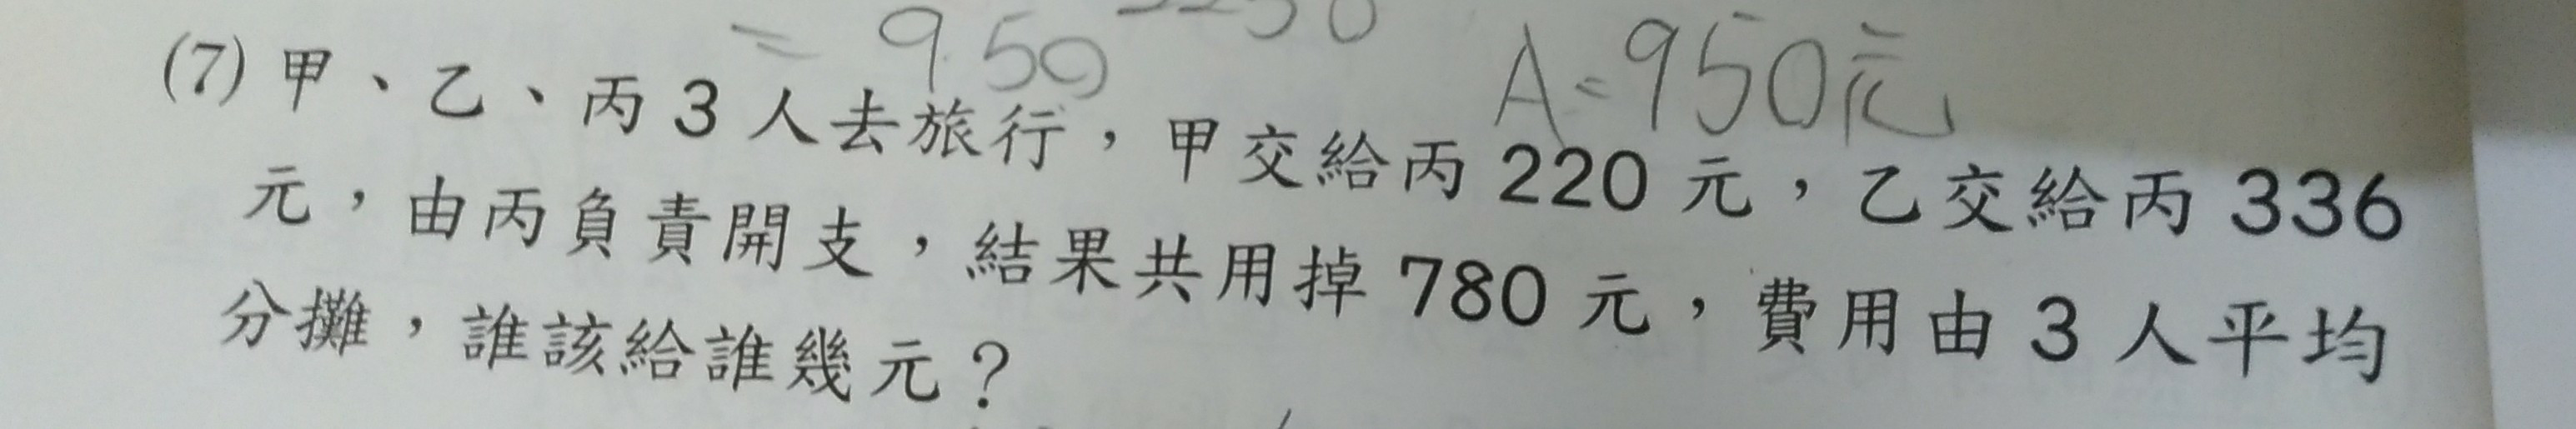 = 950
A=950元
(7) 甲、乙、丙 3 人去旅行，甲交給丙 220 元，乙交給丙 336
元，由丙負責開支，結果共用掉 780 元，費用由 3 人平均
分攤，誰該給誰幾元？